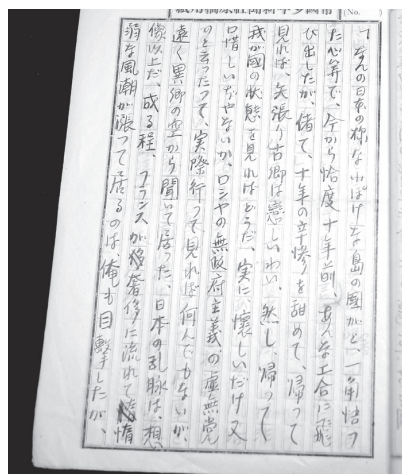 つてなんの日本の様な小ぽけな島の国がと、一角悟つ
た心算で、今から恰度十年前、あんな工合に飛
び出したが、偖て、十年の辛惨を甜めて、帰つて
見れば、矢張り古郷は恋しいわい。然し、帰つて
我が国の状態を見ればどうだ、実に、懐しいだけ又
口惜しいぢやないか、ロシヤの無政府主義の虚無党
のと云つたつて、実際行つて見れば何んでもないが、
遠く異郷の空から聞いて居つた、日本の乱脈は、想
像以上だ、成る程、フランスが豪奢侈に流れて惰
弱な風潮が漲つて居るのは、俺も目撃したが、
(No.